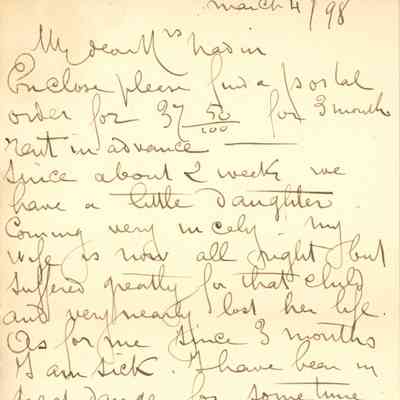 march 4/98
My dear Mrs Nadin
Enclose please find a postal
order for 37 50/100 for 3 months
rent in advance
Since about 2 weeks we
have a little daughter
Coming very nicely. my
wife is now all right but
suffered greatly for that child
and very nearly lost her life.
As for me since 3 months
I am sick. I have been in
great danger for some time